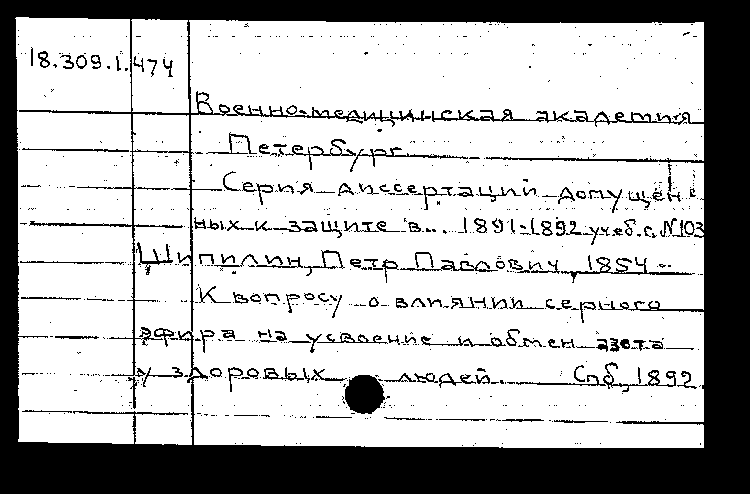 18.309.1.474
Военно-медицинская академия
Петербург
Серия диссертаций допущен-
ных к защите в... 1891-1892 учеб.г. N103
Шипилин, Петр Павлович, 1854-
К вопросу о влиянии серного
эфира на усвоение и обмен азота
у здоровых людей. Спб, 1892.